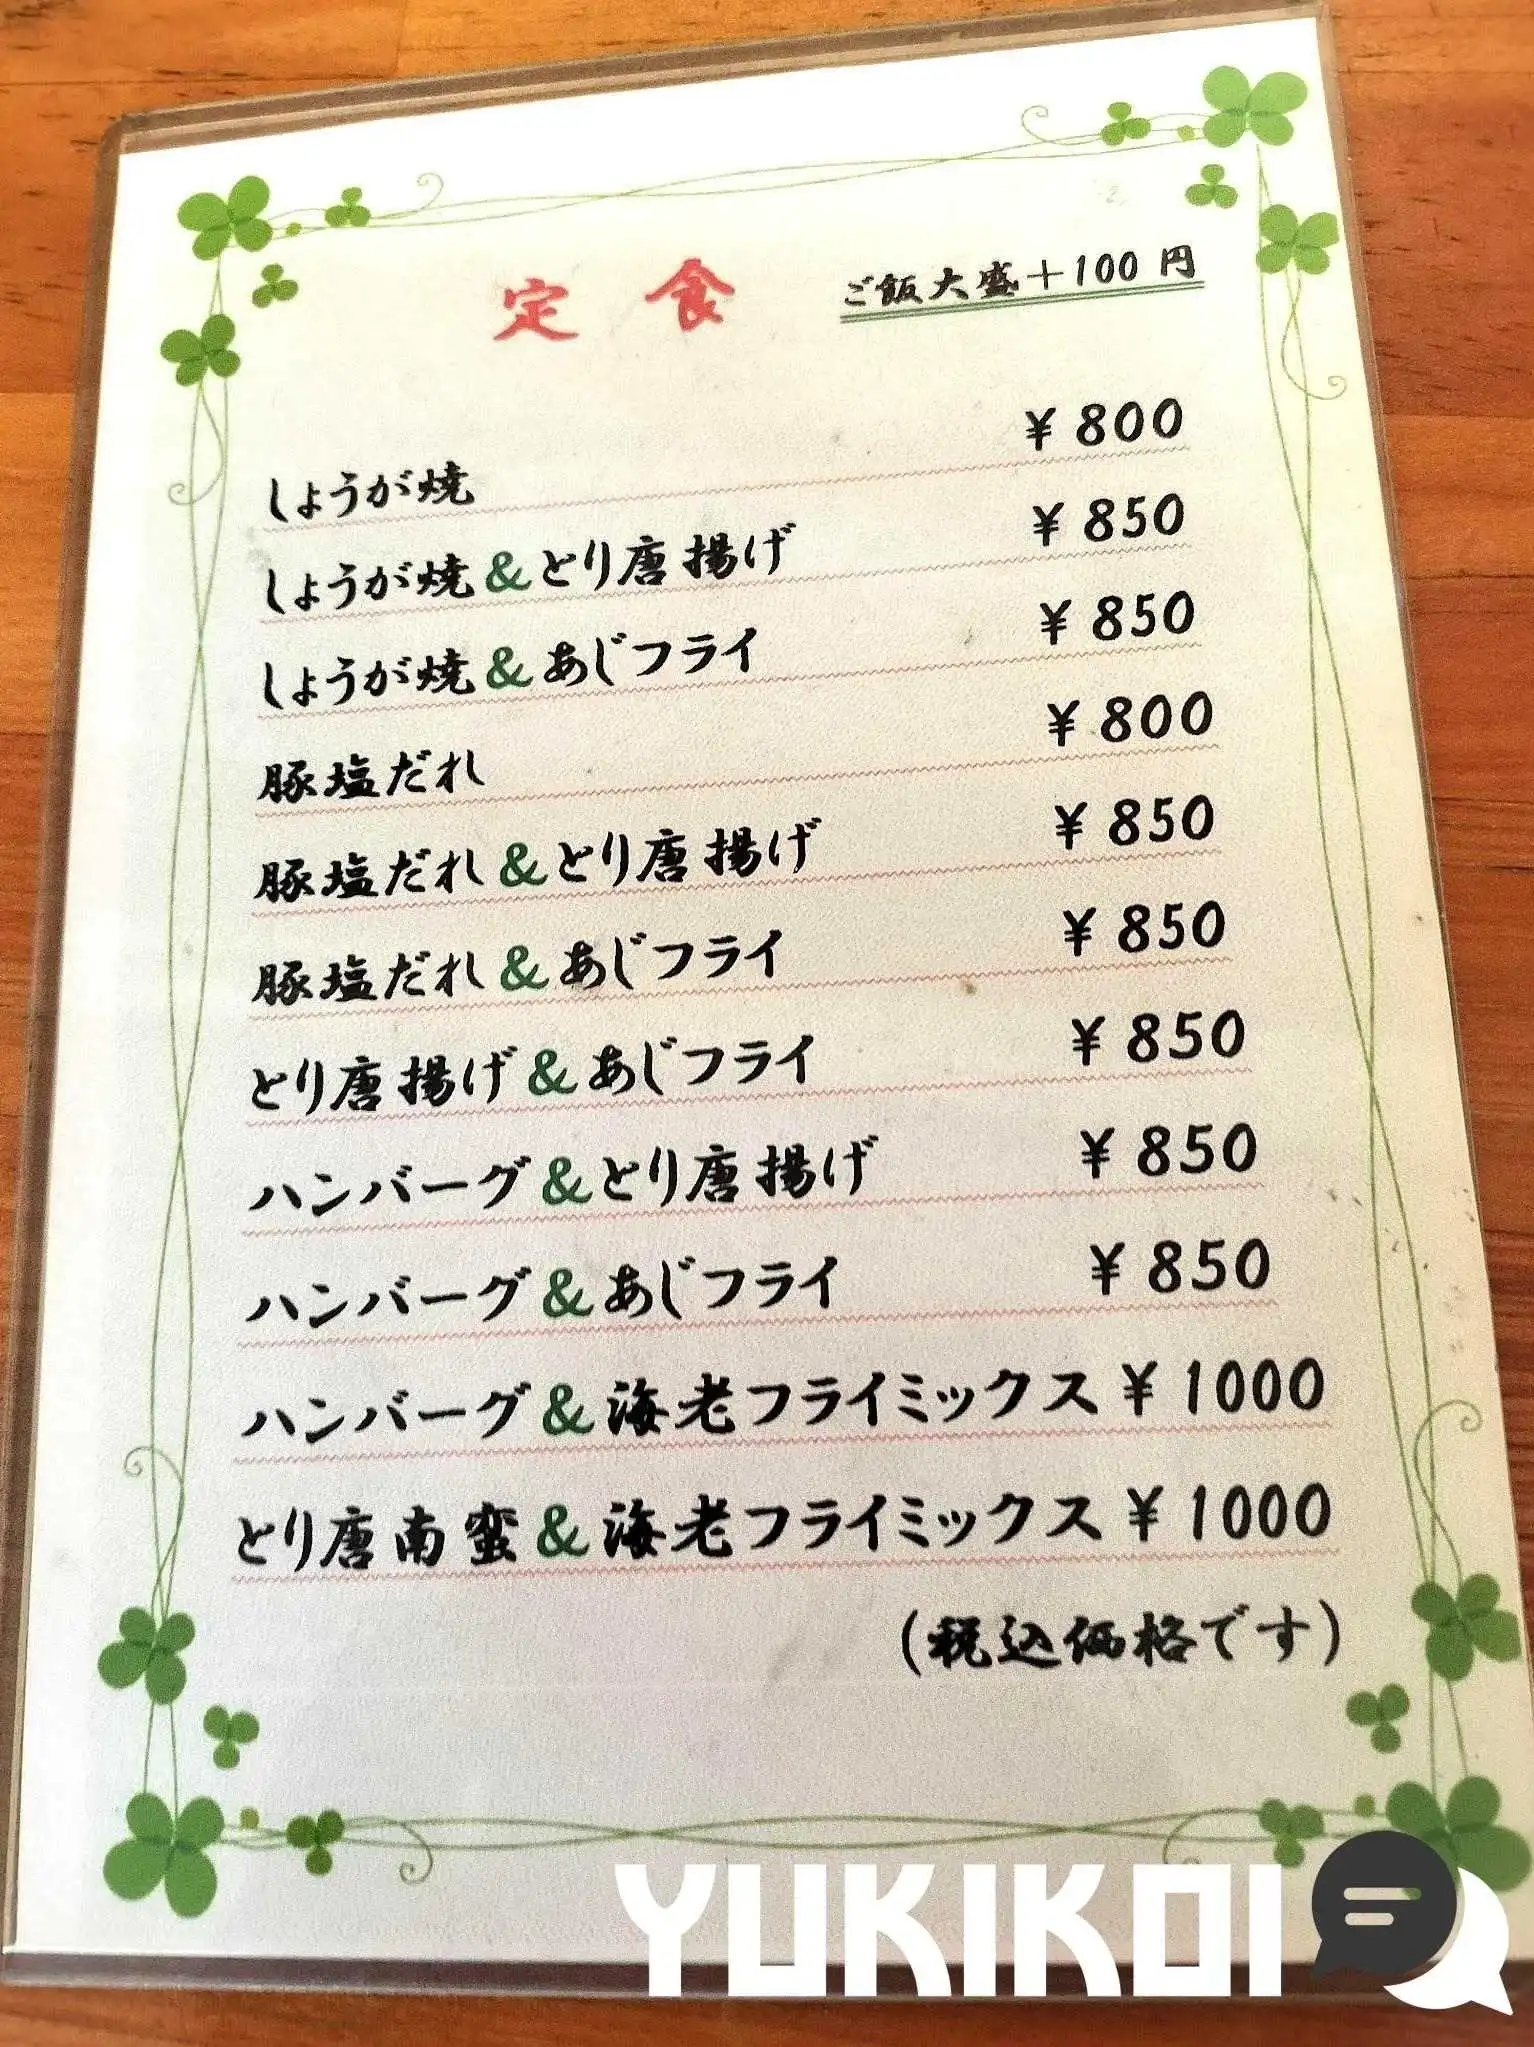 定食 ご飯大盛+100円
しょうが焼 ¥800
しょうが焼&とり唐揚げ ¥850
しょうが焼&あじフライ ¥850
豚塩だれ ¥800
豚塩だれ&とり唐揚げ ¥850
豚塩だれ&あじフライ ¥850
とり唐揚げ&あじフライ ¥850
ハンバーグ&とり唐揚げ ¥850
ハンバーグ&あじフライ ¥850
ハンバーグ&海老フライミックス ¥1000
とり唐南蛮&海老フライミックス ¥1000
(税込価格です)
YUKIKOI